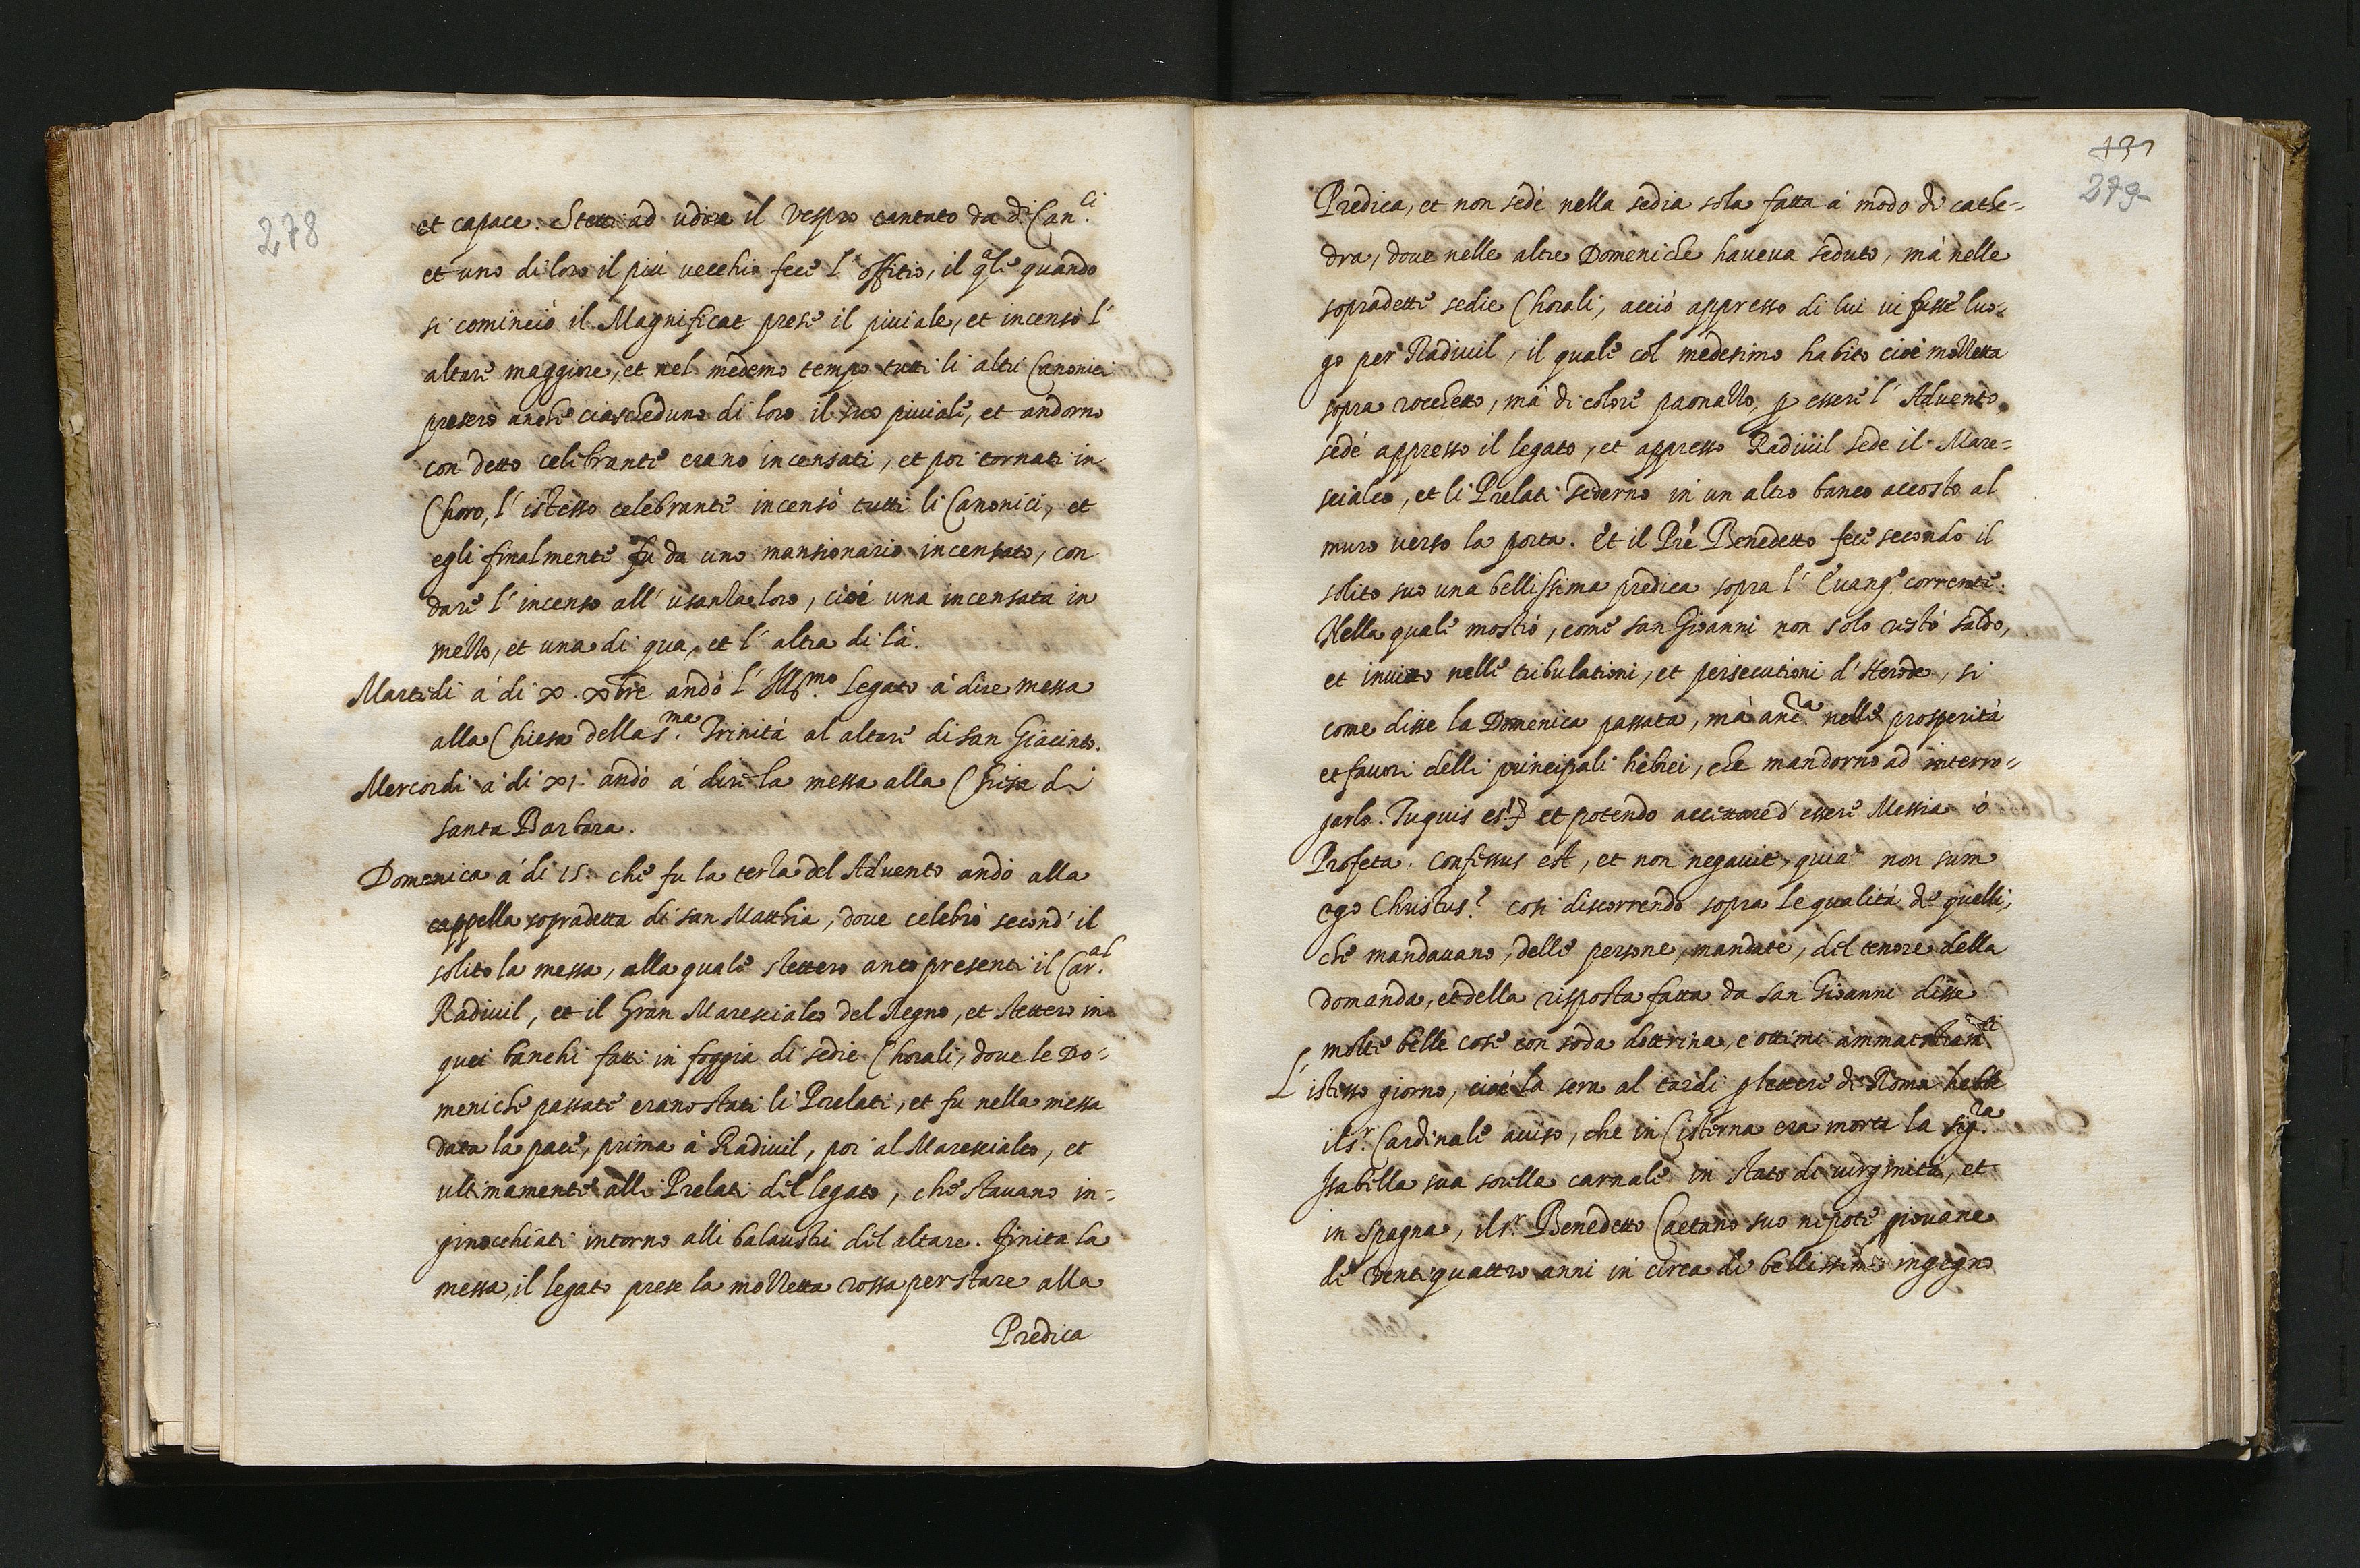 278
et capace. Stette ad udire il Vespro cantato da d.i Can.ci
et uno di loro il più vecchio fece l'offitio, il q.ale quando
si cominciò il Magnificat prese il piviale, et incensò l'
altare maggiore, et nel medemo tempo tutti li altri Canonici
presero anche ciascheduno di loro il suo piviale, et andorno
con detto celebrante erano incensati, et poi tornati in
Choro, l'istesso celebrante incensò tutti li Canonici, et
egli finalmente fu da uno mansionario incensato, con
dare l'incenso all'usanza loro, cioè una incensata in
mezzo, et una di qua, et l'altra di là.
Martedi à di X. Xbre andò l'Ill.mo Legato à dire messa
alla Chiesa della S.ma Trinità al altare di san Giacinto.
Mercordi à di XI. andò à dire la messa alla Chiesa di
santa Barbara.
Domenica à di 15. che fu la terza del Advento andò alla
cappella sopradetta di san Matthia, dove celebrò second'il
solito la messa, alla quale stettero anco presenti il Car.al
Radivil, et il Gran Maresciales del Regno, et stettero in
quei banchi fatti in foggia di sedie Chorali, dove le Do=
meniche passate erano stati li Prelati, et fu nella messa
data la pace, prima à Radivil, poi al Maresciales, et
ultimamente alli Prelati del legato, che stavano in=
ginocchiati intorno alli balaustri del altare. finita la
messa, il legato prese la mozzetta rossa per stare alla
Predica
279
Predica, et non sedè nella sedia sola fatta à modo di cathe=
dra, dove nelle altre Domeniche haveva seduto, mà nelle
sopradette sedie Chorali, acciò appresso di lui vi fusse luo=
go per Radivil, il quale col medesimo habito cioè mozzetta
sopra rocchetto, mà di colore paonazzo, p essere l'Advento,
sedè appresso il legato, et appresso Radivil sede il Mare=
scialco, et li Prelati sederno in un altro banco accosto al
muro verso la porta. Et il Pre Benedetto fece secondo il
solito suo una bellissima predica sopra l'Evang.e corrente.
Nella quale mostrò, come san Gioanni non solo restò saldo,
et invitto nelle tribulationi, et persecutioni d'Herode, si
come disse la Domenica passata, mà anc.ra nelle prosperità
et favori delli principali hebrei, che mandorno ad interro=
garlo. Tu quis es? et potendo accettare d'essere Messia ò
Profeta. Confessus est, et non negavit, quia non sum
ego Christus? così discorrendo sopra le qualità de quelli,
che mandavano, delle persone mandate, del tenore della
domanda, et della risposta fatta da san Gioanni disse
molte belle cose con soda dottrina, e ottimi ammaestram.ti
L'istesso giorno, cioè la sera al tardi p lettere di Roma hebbe
il S.r Cardinale aviso, che in Cisterna era morta la Sig.ra
Isabella sua sorella carnale in stato di virginità, et
in Spagna, il S.r Benedetto Caetano suo nipote giovane
di ventiquattro anni in circa di bellissimo ingegno